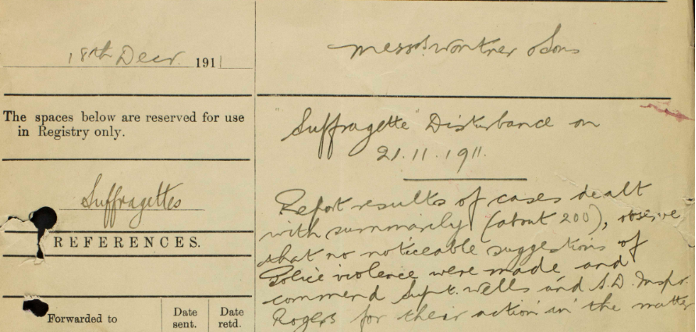 18th Decr. 1911
The spaces below are reserved for use
in Registry only.
Suffragettes
REFERENCES.
Forwarded to
Date
sent.
Date
retd.
Messrs. Wontner & Sons
"Suffragette" Disturbance on
21.11.1911.
Report results of cases dealt
with summarily (about 200), observe
that no noticeable suggestions of
Police violence were made and
commend Supt. Wells and S.D. Inspr.
Rogers for their action in the matter